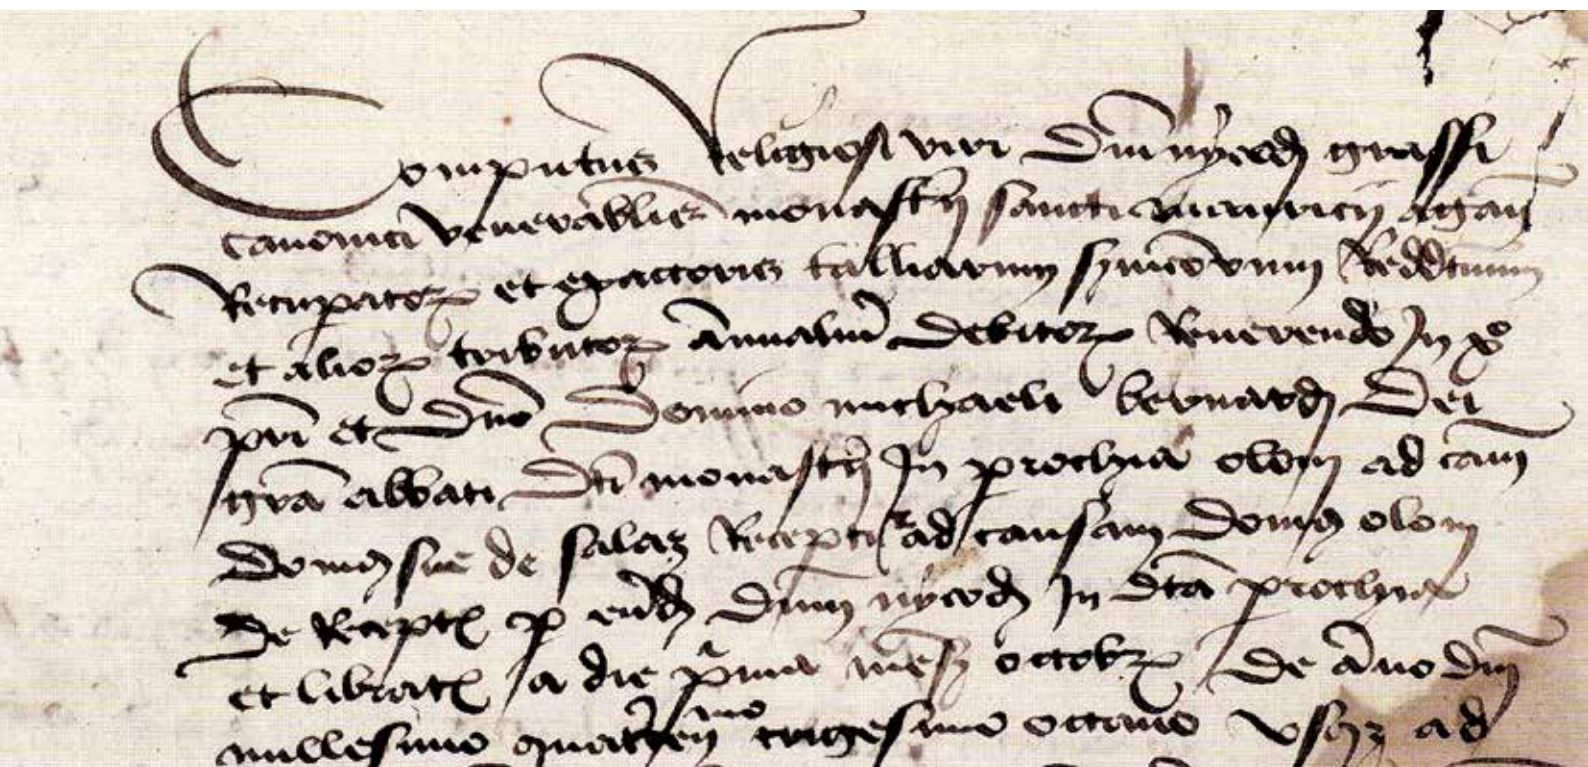 Computus Religiosi viri Dni nycodi grassi
canonici venerabilis monastii sancti mauricii agaun
Recupator et exactoris talliarum Reddituum
et alior tributor Annualiu Debitor Reverendo In xo
pri et Dno Domino michaeli bernardi Dei
gra abbati Dti monastii In prochia olom ad cam
Domus sue de salaz Recepti ad causam Domus olom
De Recept p eud Dnm nycod In dta prochia
et librat a die prima mens octobr De Anno Dni
millesimo quatercen mo trigesimo octavo Vsqz ad